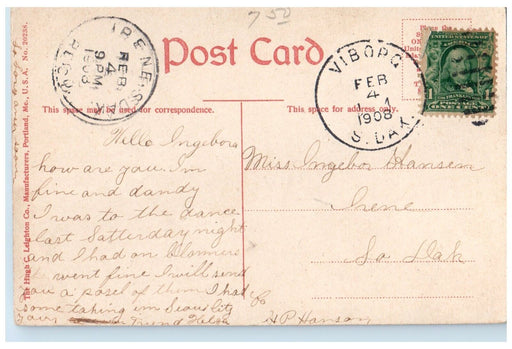 7 50
Post Card
IRENE S. DAK.
FEB
4
9PM
1908
VIBORG
FEB
4
1908
S. DAK.
This space may be used for correspondence.
This space for address only.
The Hugh C. Leighton Co., Manufacturers, Portland, Me., U. S. A. No. 29238.
Hello Ingebora
how are you. Im
fine and dandy
I was to the dance
last Satterday night
and I had on Blomers
went fine I will send
you a posel of them I had
some taking im Sioux City
Yours friend Helga
Miss Ingebor Hansen
Irene
So Dak
C/o
H P Hanson